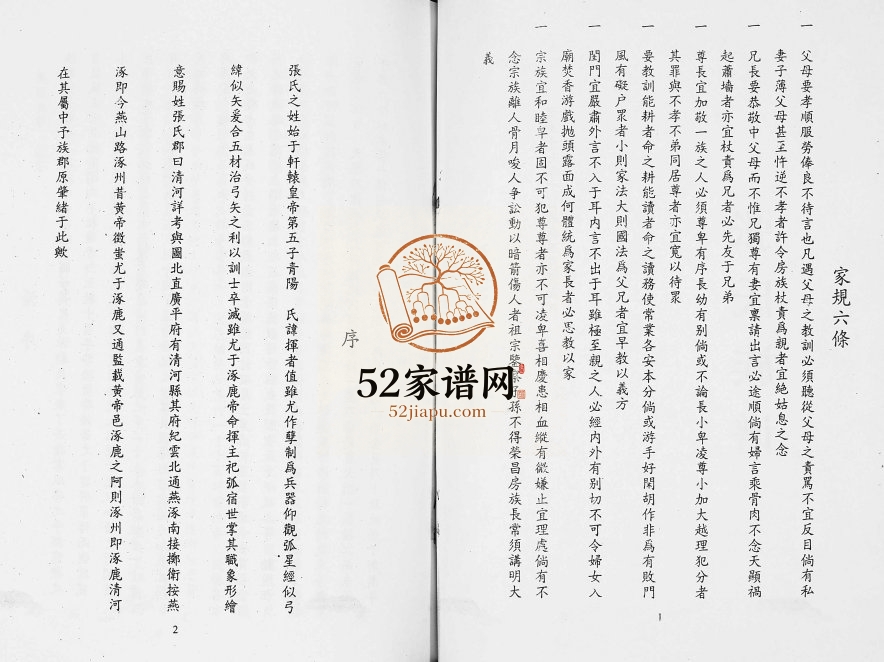 家規六條
一 父母要孝順服勞俸良不待言也凡遇父母之教訓必須聽從父母之責罵不宜反目倘有私
妻子薄父母甚至忤逆不孝者許令房族杖責爲親者宜絶姑息之念
一 兄長要恭敬中父母而不惟兄獨尊有妻宜禀請出言必途順倘有婦言乘骨肉不念天顯禍
起蕭墻者亦宜杖責爲兄者必先友于兄弟
一 尊長宜加敬一族之人必須尊卑有序長幼有别倘或不論長小卑凌尊小加大越理犯分者
其罪與不孝不弟同居尊者亦宜寬以待眾
一 要教訓能耕者命之耕能讀者命之讀務使常業各安本分倘或游手好閑胡作非爲有敗門
風有礙户眾者小則家法大則國法爲父兄者宜早教以義方
一 閨門宜嚴肅外言不入于耳内言不出于耳雖極至親之人必經内外有别切不可令婦女入
廟焚香游戲抛頭露面成何體統爲家長者必思教以家
一 宗族宜和睦卑者固不可犯尊尊者亦不可凌卑喜相慶患相血縱有微嫌止宜理處倘有不
念宗族離人骨月唆人争訟動以暗箭傷人者祖宗鑒 孫不得榮昌房族長常須講明大
義
1
序
張氏之姓始于軒轅皇帝第五子青陽 氏諱揮者值雖尤作孽制爲兵器仰觀弧星經似弓
緯似矢爰合五材治弓矢之利以訓士卒滅雖尤于涿鹿帝命揮主祀弧宿世掌其職象形繪
意賜姓張氏郡曰清河詳考與圖北直廣平府有清河縣其府紀雲北通燕涿南接擲衛按燕
涿即今燕山路涿州昔黄帝徵蚩尤于涿鹿又通監載黄帝邑涿鹿之阿則涿州即涿鹿清河
在其屬中予族郡原肇緒于此歟
2
52家谱网
52jiapu.com